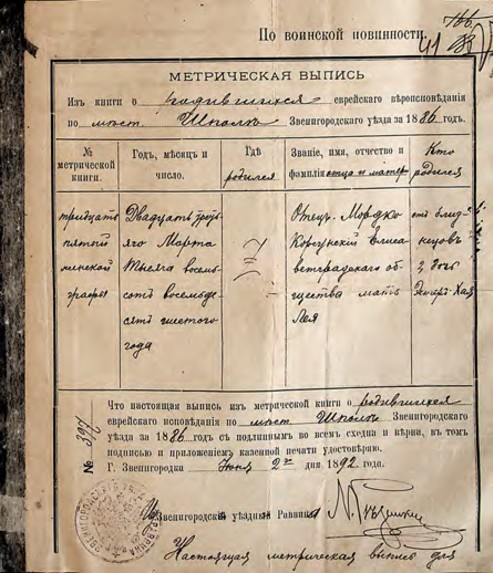 По воинской повинности.
41
МЕТРИЧЕСКАЯ ВЫПИСЬ
Изъ книги о родившихся еврейскаго вѣроисповѣданія
по мѣст. Шполѣ Звенигородскаго уѣзда за 1886 годъ.
№ метрической книги.
Годъ, мѣсяцъ и число.
Гдѣ родился
Званіе, имя, отчество и фамилія отца и матери
Кто родился
тридцать
пятый
женской
графы
Двадцать третьяго Марта
тысяча восемь
сотъ восемьде
сятъ шестого
года
Отецъ Мордко
Корсунскій елиса
ветградскаго об
щества мать
Лея
отъ близ
нецовъ
2 дочь
Что настоящая выпись изъ метрической книги о родившихся
еврейскаго исповѣданія по мѣст. Шполѣ Звенигородскаго
уѣзда за 1886 годъ съ подлиннымъ во всемъ сходна и вѣрна, въ томъ
подписью и приложеніемъ казенной печати удостовѣряю.
Г. Звенигородка Июня 2го дня 1892 года.
№ 397
Звенигородскій уѣздный Раввинъ
Настоящая метрическая выпись для